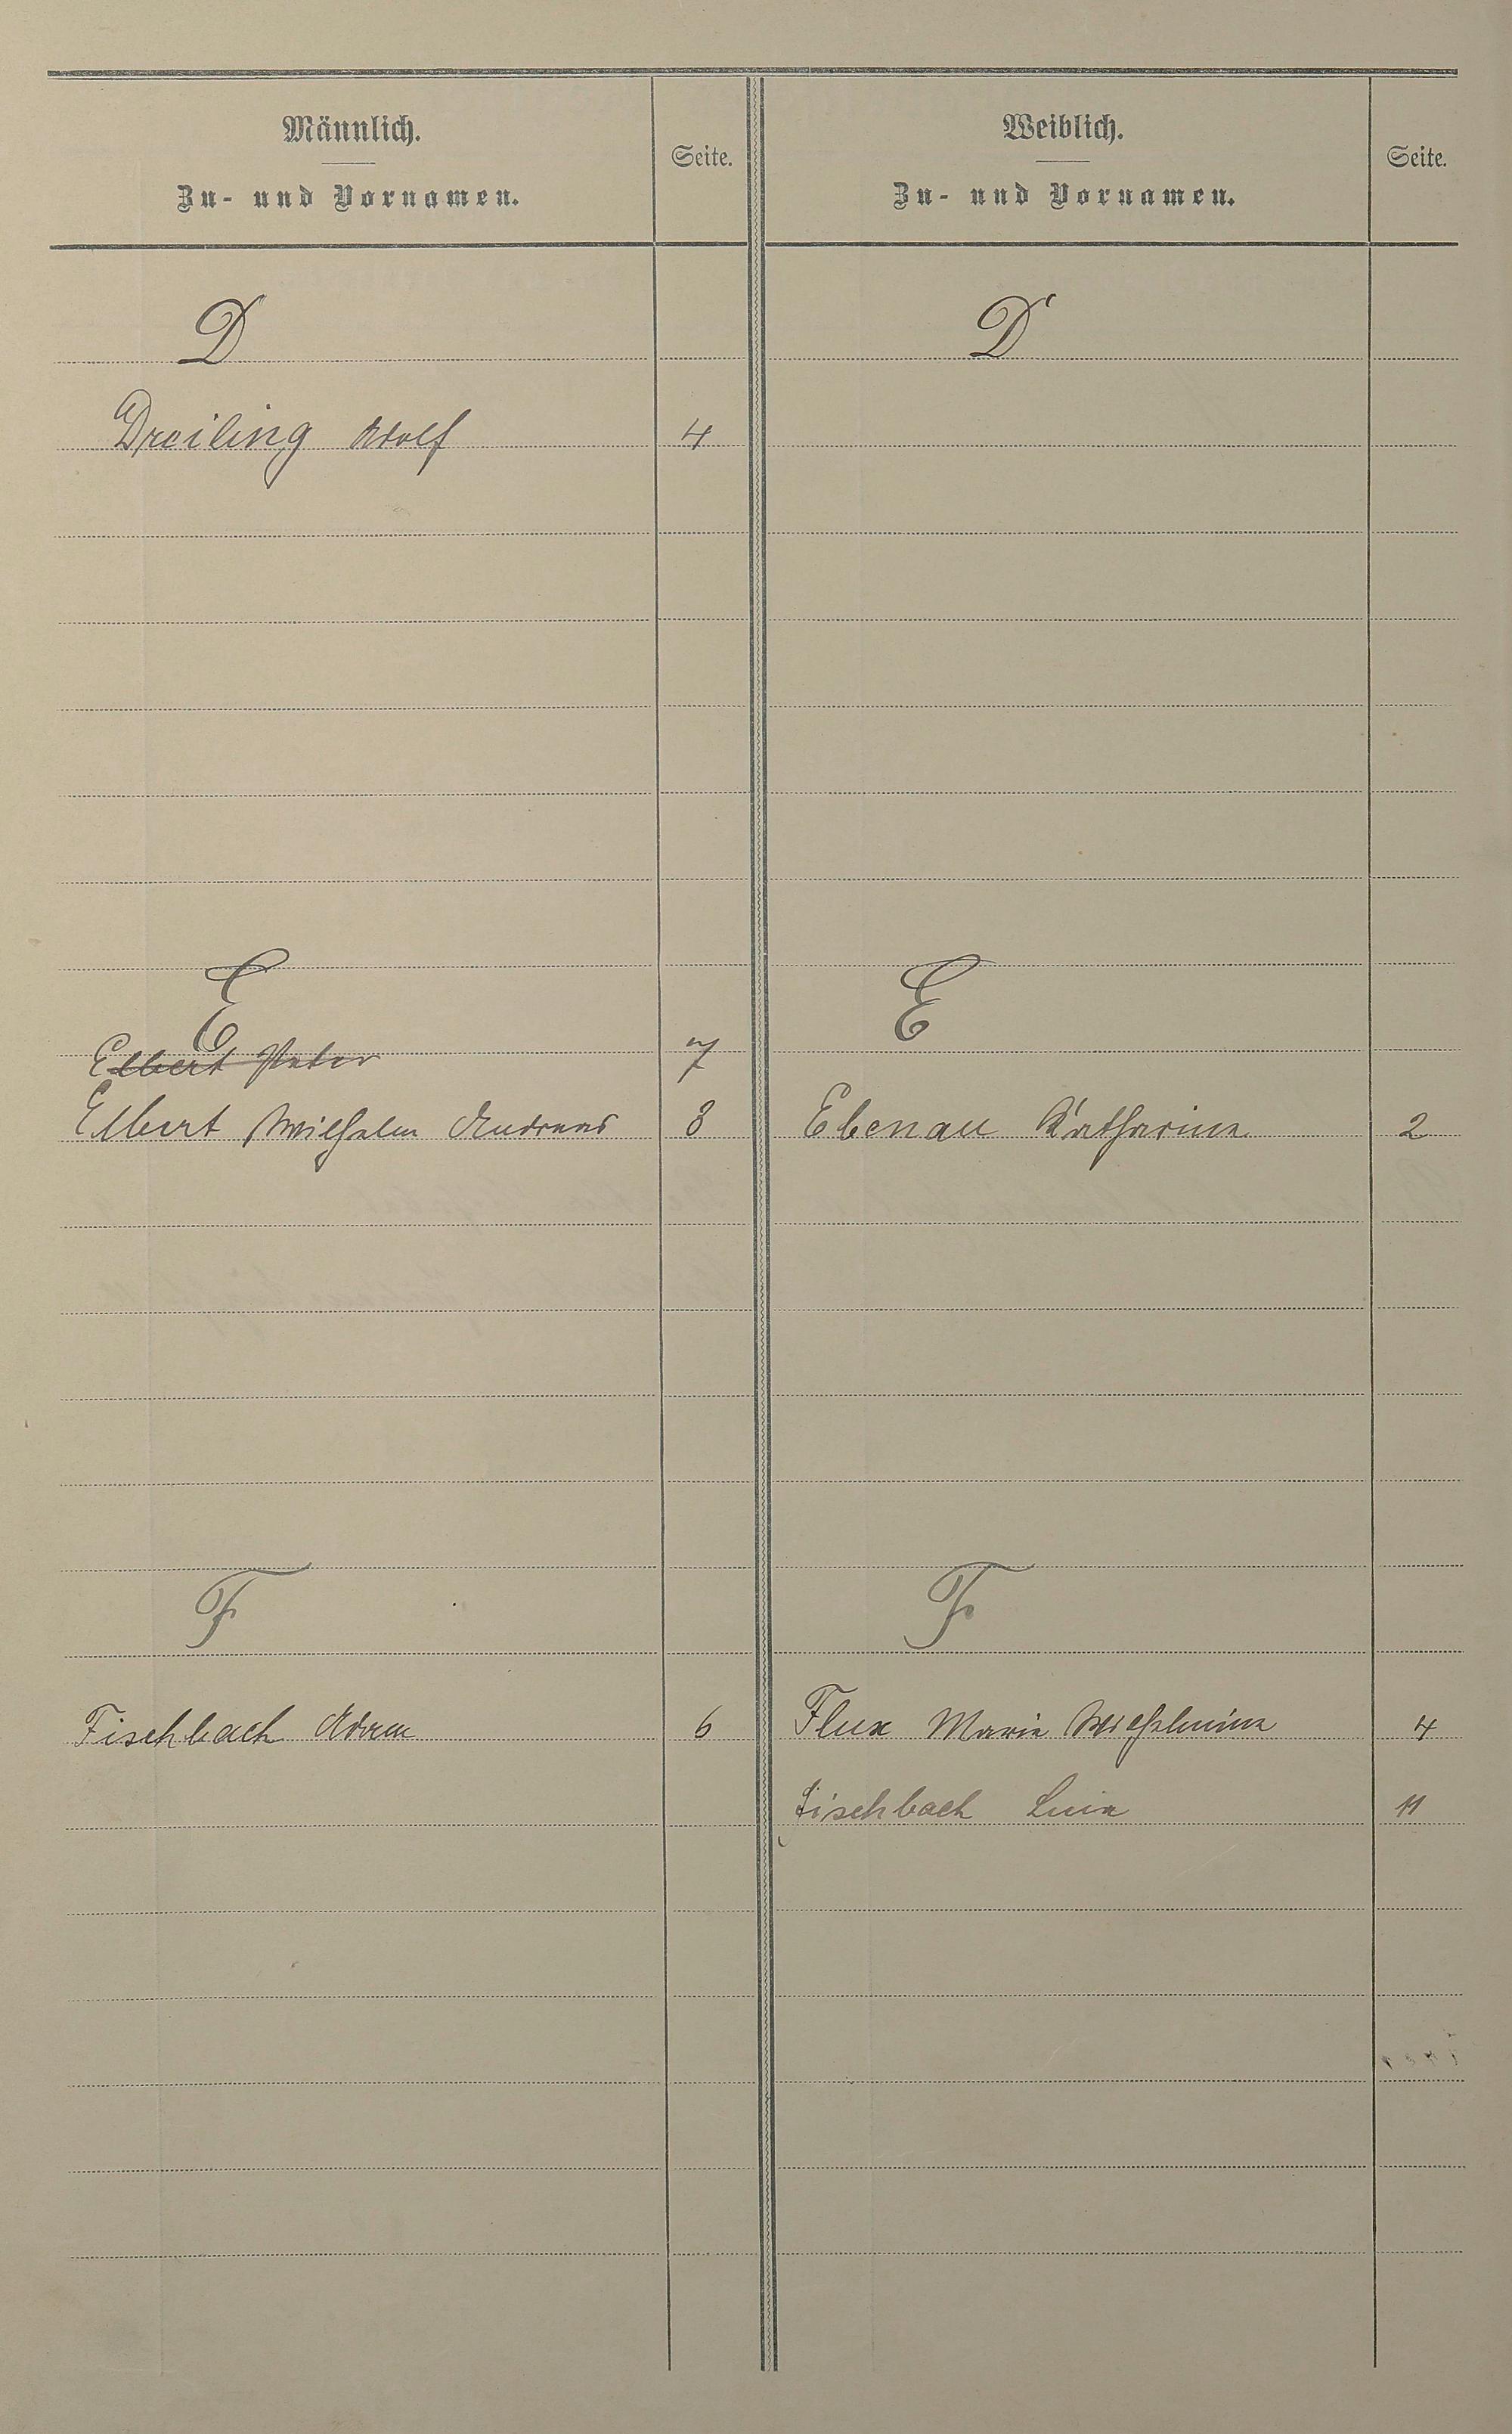 Männlich.
Zu- und Vornamen.
Seite.
Weiblich.
Zu- und Vornamen.
Seite.
D
D
Dreiling Adolf 4
E
E
Elbert Peter 7
Elbert Wilhelm Andreas 8
Ebenau Katharina 2
F
F
Fischbach Adam 6
Flux Maria Wilhelmina 4
Fischbach 11